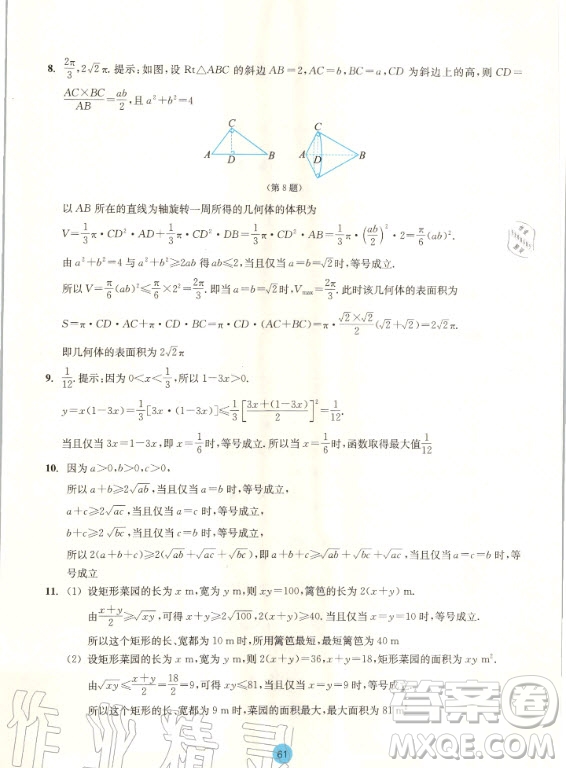 8. 2π/3, 2√2π. 提示:如图,设 Rt△ABC 的斜边 AB=2,AC=b,BC=a,CD 为斜边上的高,则 CD=
AC×BC/AB=ab/2,且 a²+b²=4
C
A D B
C
A D B
(第 8 题)
以 AB 所在的直线为轴旋转一周所得的几何体的体积为
V=1/3π·CD²·AD+1/3π·CD²·DB=1/3π·CD²·AB=1/3π·(ab/2)²·2=π/6(ab)².
由 a²+b²=4 与 a²+b²≥2ab 得 ab≤2,当且仅当 a=b=√2时,等号成立.
所以 V=π/6(ab)²≤π/6×2²=2π/3. 即当 a=b=√2时,Vmax=2π/3. 此时该几何体的表面积为
S=π·CD·AC+π·CD·BC=π·CD·(AC+BC)=π·√2×√2/2(√2+√2)=2√2π.
即几何体的表面积为 2√2π
9. 1/12. 提示:因为 0<x<1/3,所以 1-3x>0.
y=x(1-3x)=1/3[3x·(1-3x)]≤1/3[3x+(1-3x)/2]²=1/12.
当且仅当 3x=1-3x,即 x=1/6时,等号成立. 所以当 x=1/6时,函数取得最大值1/12
10. 因为 a>0,b>0,c>0,
所以 a+b≥2√ab,当且仅当 a=b 时,等号成立,
a+c≥2√ac,当且仅当 a=c 时,等号成立,
b+c≥2√bc,当且仅当 b=c 时,等号成立,
所以 2(a+b+c)≥2(√ab+√ac+√bc),即 a+b+c≥√ab+√ac+√bc,当且仅当 a=b=c 时,等
号成立
11. (1) 设矩形菜园的长为 x m,宽为 y m,则 xy=100,篱笆的长为 2(x+y) m.
由x+y/2≥√xy,可得 x+y≥2√100,2(x+y)≥40,当且仅当 x=y=10 时,等号成立.
所以这个矩形的长、宽都为 10 m时,所用篱笆最短,最短篱笆为 40 m
(2) 设矩形菜园的长为 x m,宽为 y m,则 2(x+y)=36,x+y=18,矩形菜园的面积为 xy m².
由√xy≤x+y/2=18/2=9,可得 xy≤81,当且仅当 x=y=9 时,等号成立
所以这个矩形的长、宽都为 9 m 时,菜园的面积最大,最大面积为 81
61
作业精灵
答案圈
MXQE.COM